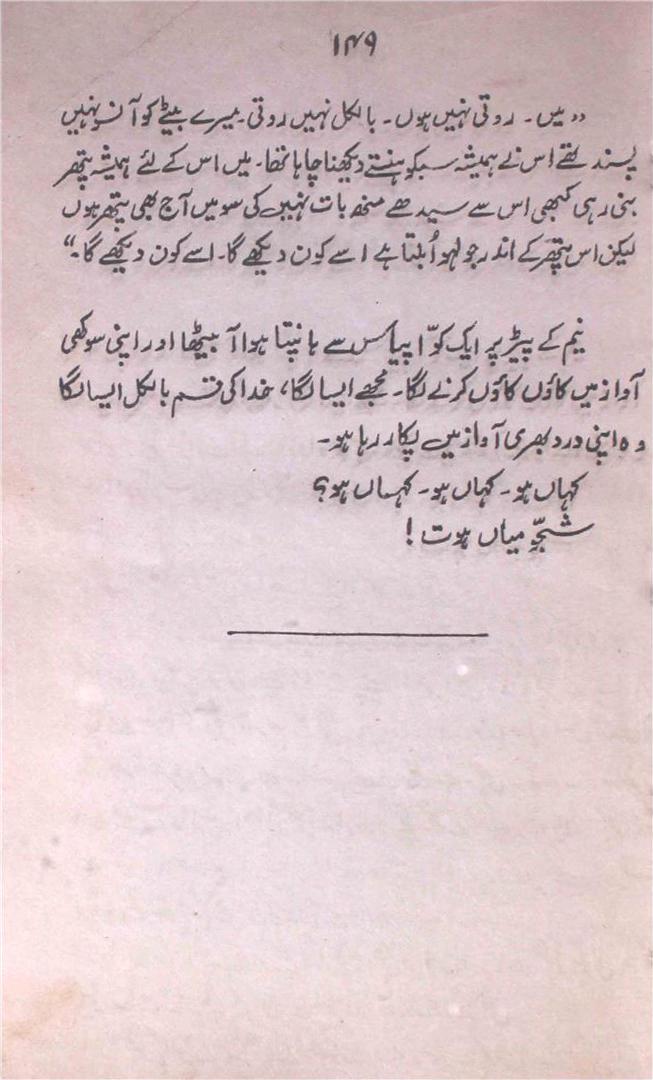 ۱۴۹
"میں۔ روتی نہیں ہوں۔ بالکل نہیں روتی۔ میرے بیٹے کو آنسو نہیں
پسند تھے اس نے ہمیشہ سب کو ہنستے دیکھنا چاہا تھا۔ میں اس کے لئے ہمیشہ پتھر
بنی رہی کبھی اس سے سیدھے منھ بات نہیں کی سو میں آج بھی پتھر ہوں
لیکن اس پتھر کے اندر جو لہو اُبلتا ہے اسے کون دیکھے گا۔ اسے کون دیکھے گا۔"
نیم کے پیڑ پر ایک کوّا پیاس سے ہانپتا ہوا آ بیٹھا اور اپنی سوکھی
آواز میں کاؤں کاؤں کرنے لگا۔ مجھے ایسا لگا، خدا کی قسم بالکل ایسا لگا
وہ اپنی درد بھری آواز میں پکار رہا ہو۔
کہاں ہو۔ کہاں ہو۔ کہاں ہو؟
میاں ہوت!